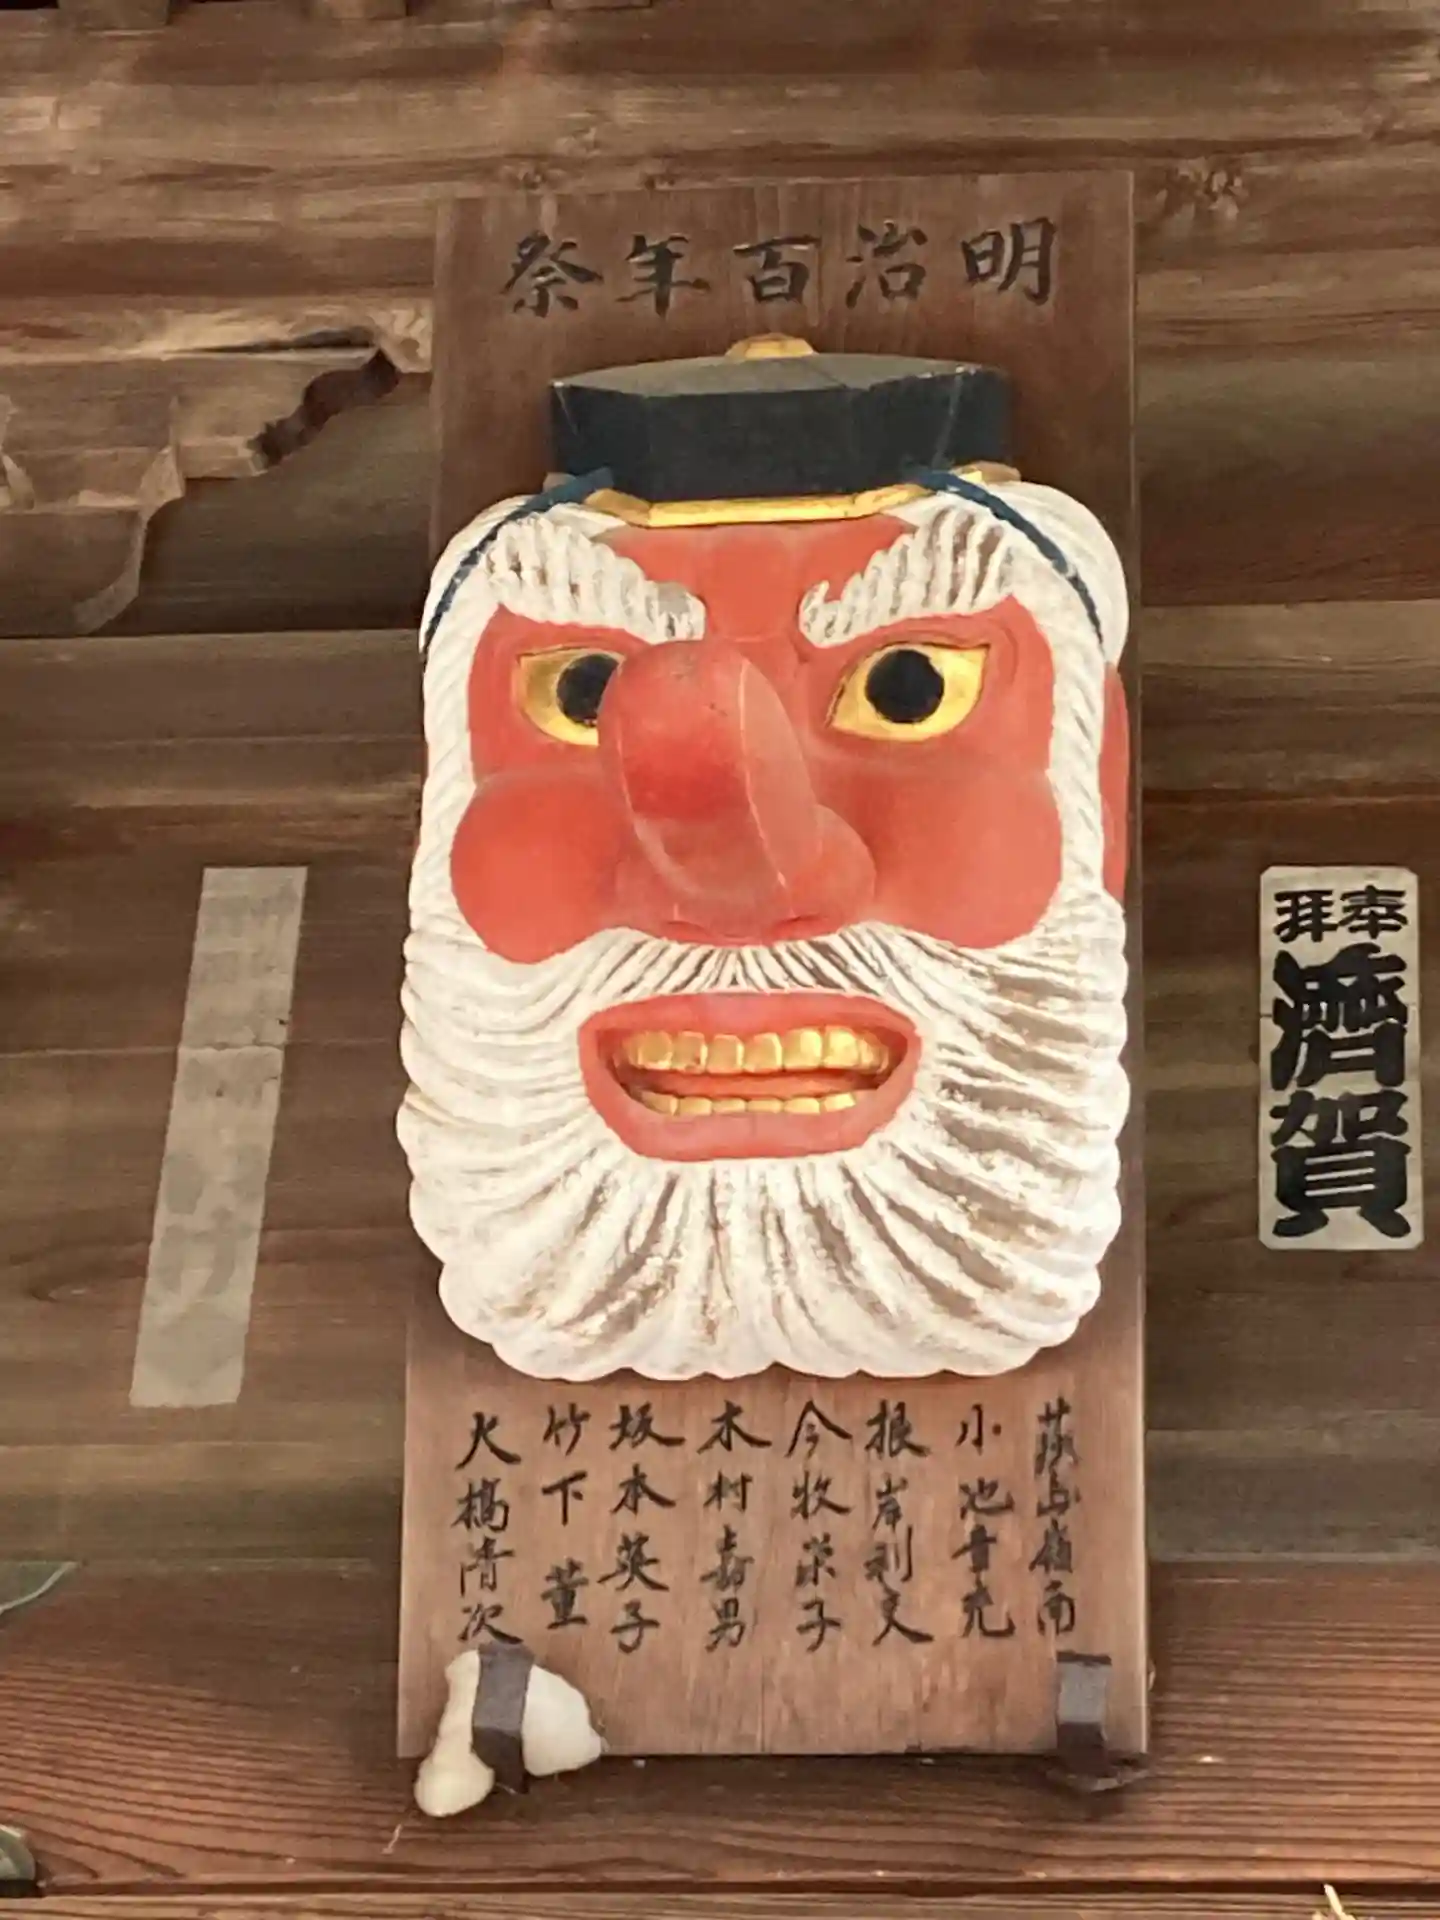 明治百年祭
小池章光
根岸利夫
今牧栄子
木村嘉男
坂本英子
竹下董
大橋清次
奉拝
濟賀